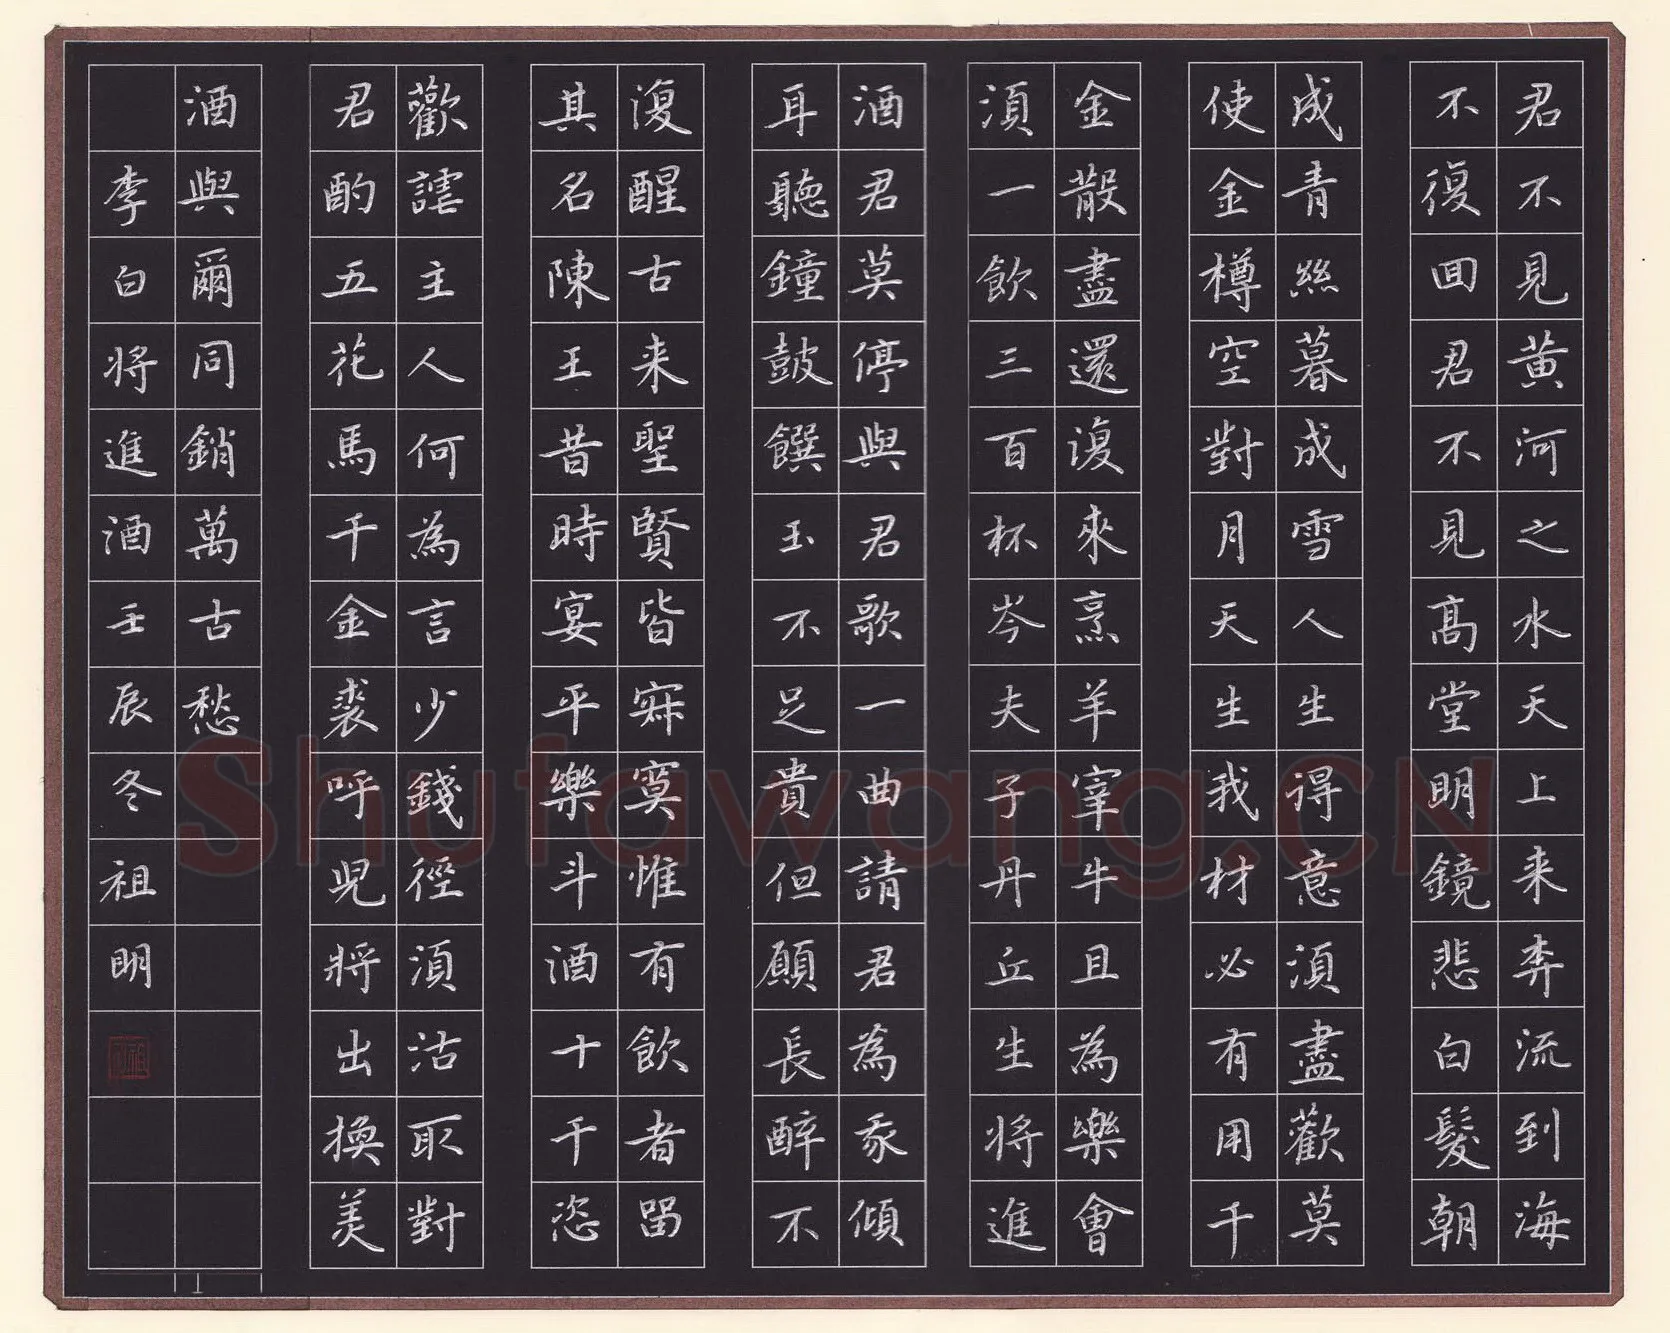 君不見黃河之水天上来奔流到海
不復回君不見髙堂明鏡悲白髮朝
成青絲暮成雪人生得意須盡歡莫
使金樽空對月天生我材必有用千
金散盡還復來烹羊宰牛且為樂會
須一飲三百杯岑夫子丹丘生将進
酒君莫停與君歌一曲請君為我傾
耳聽鐘鼓饌玉不足貴但願長醉不
復醒古来聖賢皆寂寞惟有飲者留
其名陳王昔時宴平樂斗酒十千恣
歡謔主人何為言少錢徑須沽取對
君酌五花馬千金裘呼兒將出換美
酒與爾同銷萬古愁
李白将進酒壬辰冬祖明
Shufawang.CN